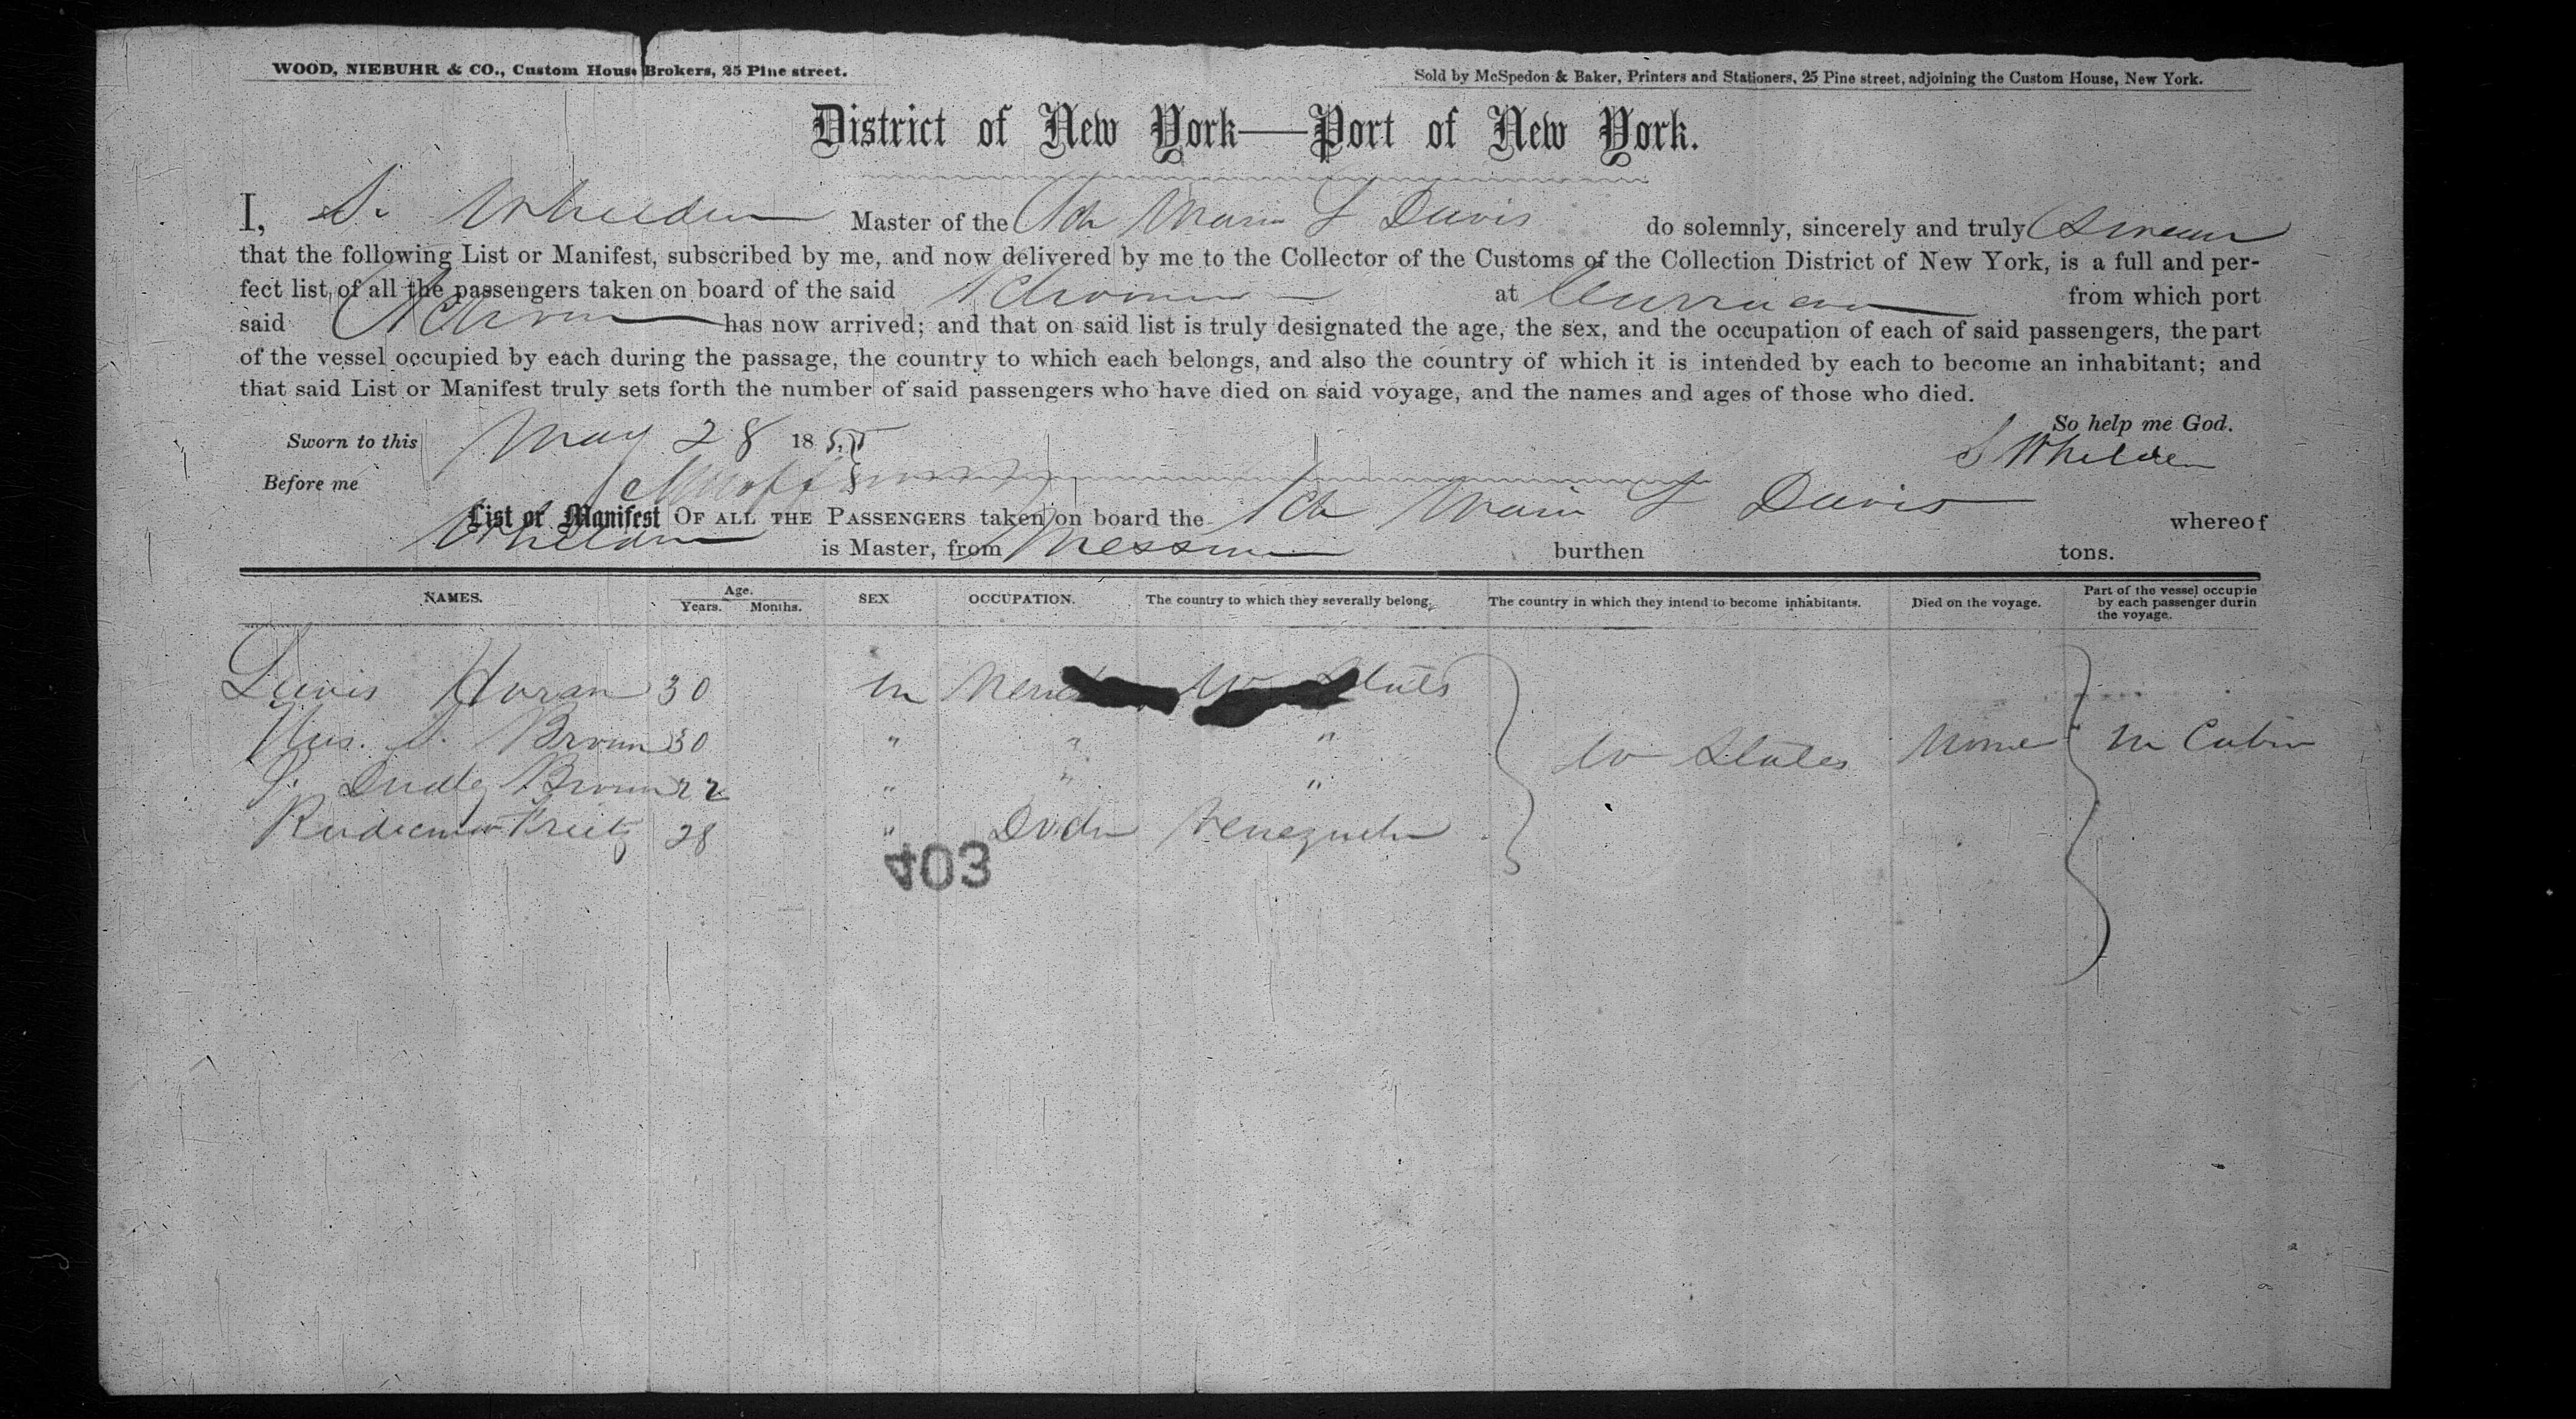 WOOD, NIEBUHR & CO., Custom House Brokers, 25 Pine street.
Sold by McSpedon & Baker, Printers and Stationers, 25 Pine street, adjoining the Custom House, New York.
District of New York—Port of New York.
I, S. Whelden Master of the Sch Maria L Davis do solemnly, sincerely and truly Swear
that the following List or Manifest, subscribed by me, and now delivered by me to the Collector of the Customs of the Collection District of New York, is a full and per-
fect list of all the passengers taken on board of the said Schooner at Curracao from which port
said Schooner has now arrived; and that on said list is truly designated the age, the sex, and the occupation of each of said passengers, the part
of the vessel occupied by each during the passage, the country to which each belongs, and also the country of which it is intended by each to become an inhabitant; and
that said List or Manifest truly sets forth the number of said passengers who have died on said voyage, and the names and ages of those who died.
So help me God.
Sworn to this May 28 1855
S Whelden
Before me
List or Manifest OF ALL THE PASSENGERS taken on board the Sch Maria L Davis whereof
Whelden is Master, from burthen tons.
NAMES. Age. Years. Months. SEX OCCUPATION. The country to which they severally belong. The country in which they intend to become inhabitants. Died on the voyage. Part of the vessel occupie by each passenger durin the voyage.
Horan 30 m States
Brown 30 " " "
Brown 22 " " "
28 " Venezuela
U States None In Cabin
403